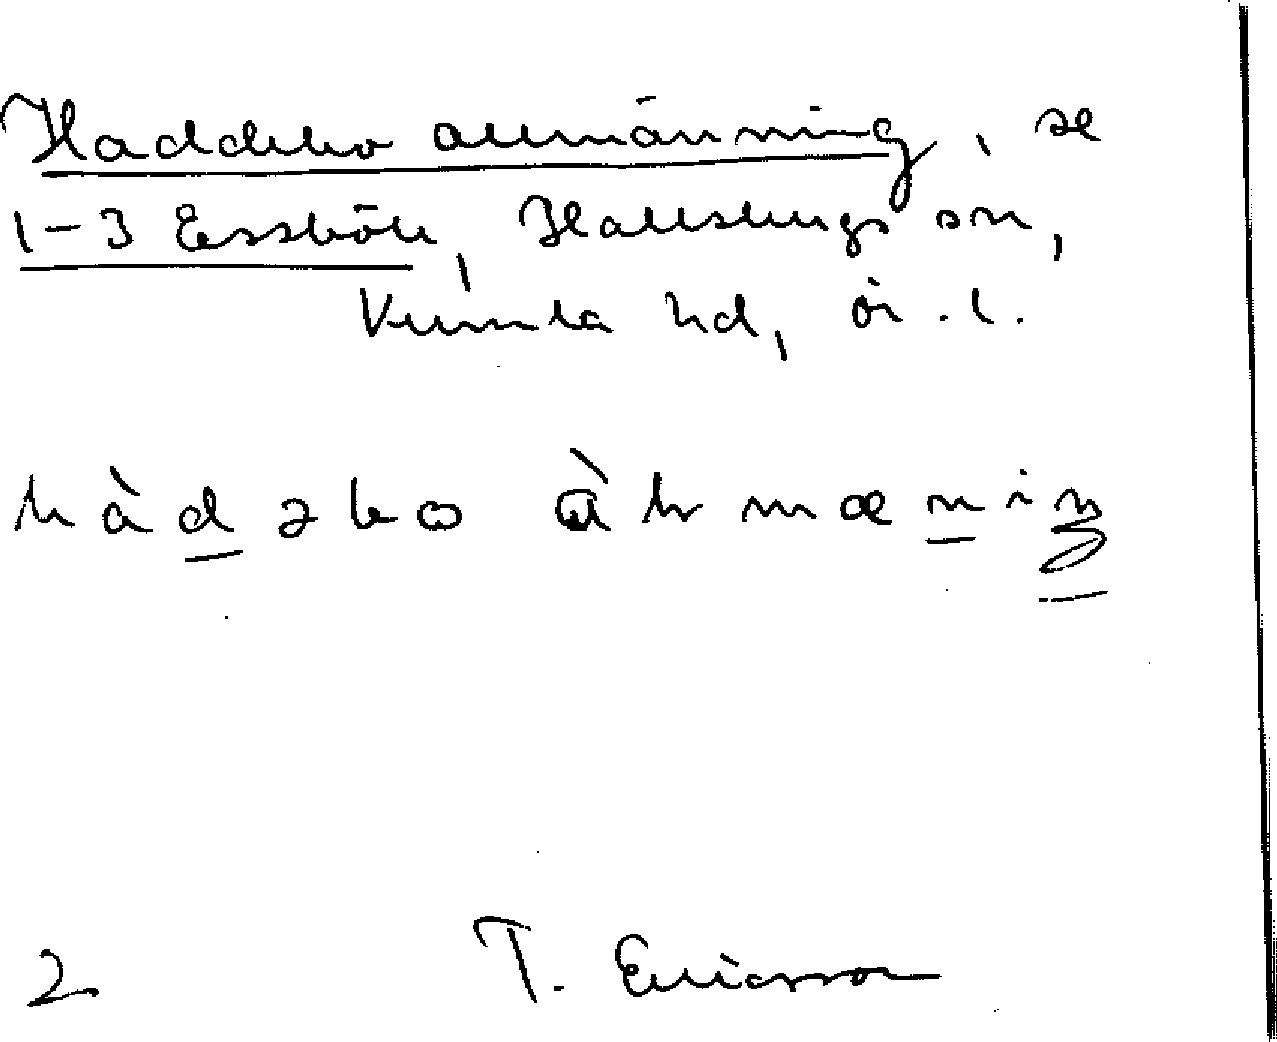 Haddebo allmänning, se
1-3 Essböle, Hallsbergs sn,
Kumla hd, ör. l.
hàdəbo àlmæniŋ
2 T. Ericsson